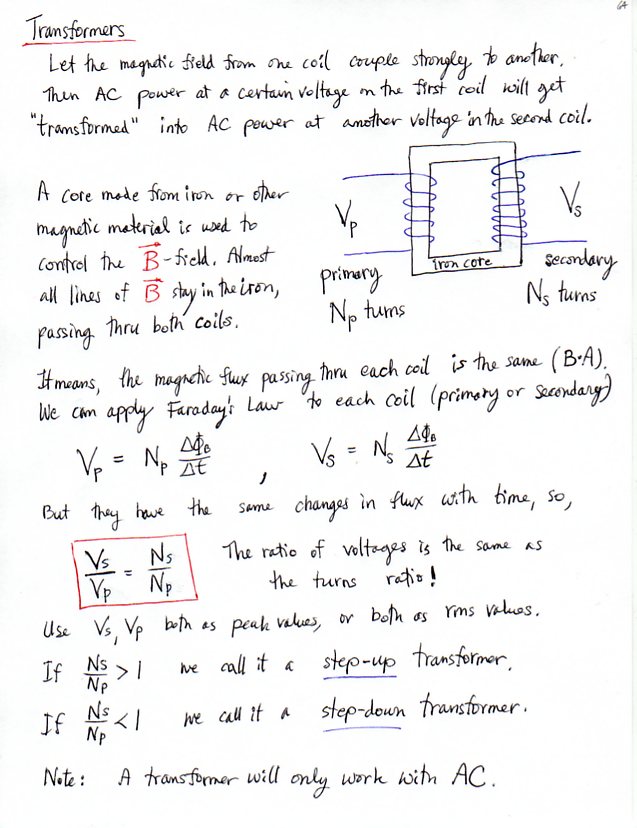 Transformers
Let the magnetic field from one coil couple strongly to another.
Then AC power at a certain voltage on the first coil will get
"transformed" into AC power at another voltage in the second coil.
A core made from iron or other
magnetic material is used to
control the B⃗-field. Almost
all lines of B⃗ stay in the iron,
passing thru both coils.
Vp
Vs
iron core
primary
Np turns
secondary
Ns turns
It means, the magnetic flux passing thru each coil is the same (B·A).
We can apply Faraday's Law to each coil (primary or secondary)
Vp = Np ΔΦB/Δt , Vs = Ns ΔΦB/Δt
But they have the same changes in flux with time, so,
Vs/Vp = Ns/Np
The ratio of voltages is the same as
the turns ratio!
Use Vs, Vp both as peak values, or both as rms values.
If Ns/Np > 1 we call it a step-up transformer.
If Ns/Np < 1 we call it a step-down transformer.
Note: A transformer will only work with AC.